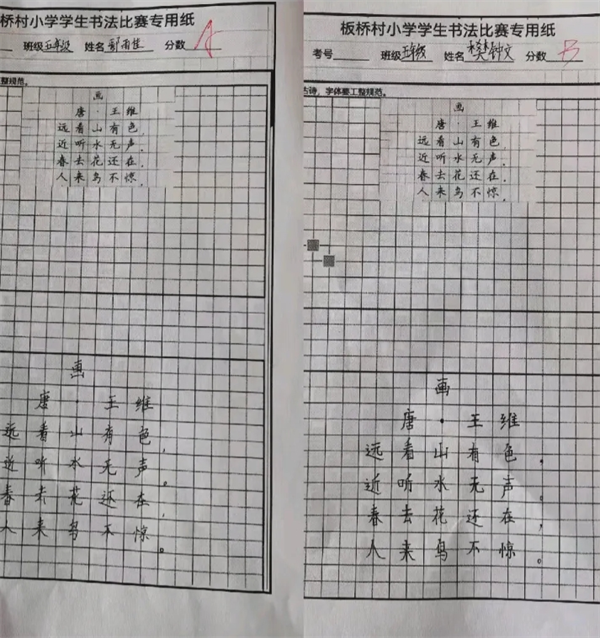 桥村小学学生书法比赛专用纸
班级五年级 姓名 分数 A
整规范。
画
唐·王维
远看山有色,
近听水无声。
春去花还在,
人来鸟不惊。
画
唐·王维
远看山有色,
近听水无声。
春去花还在,
人来鸟不惊。
板桥村小学学生书法比赛专用纸
考号 班级五年级 姓名樊钟文 分数 B
古诗,字体要工整规范。
画
唐·王维
远看山有色,
近听水无声。
春去花还在,
人来鸟不惊。
画
唐·王维
远看山有色,
近听水无声。
春去花还在,
人来鸟不惊。